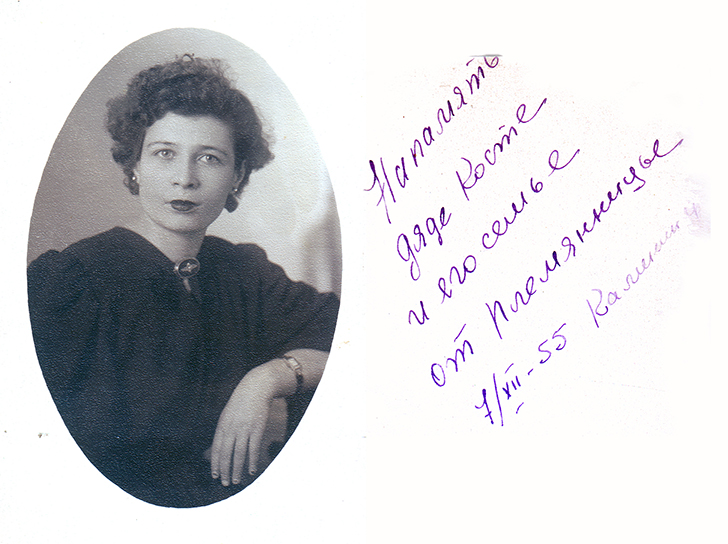 На память
дяде Косте
и его семье
от племянницы
7/XII-55 Калинин